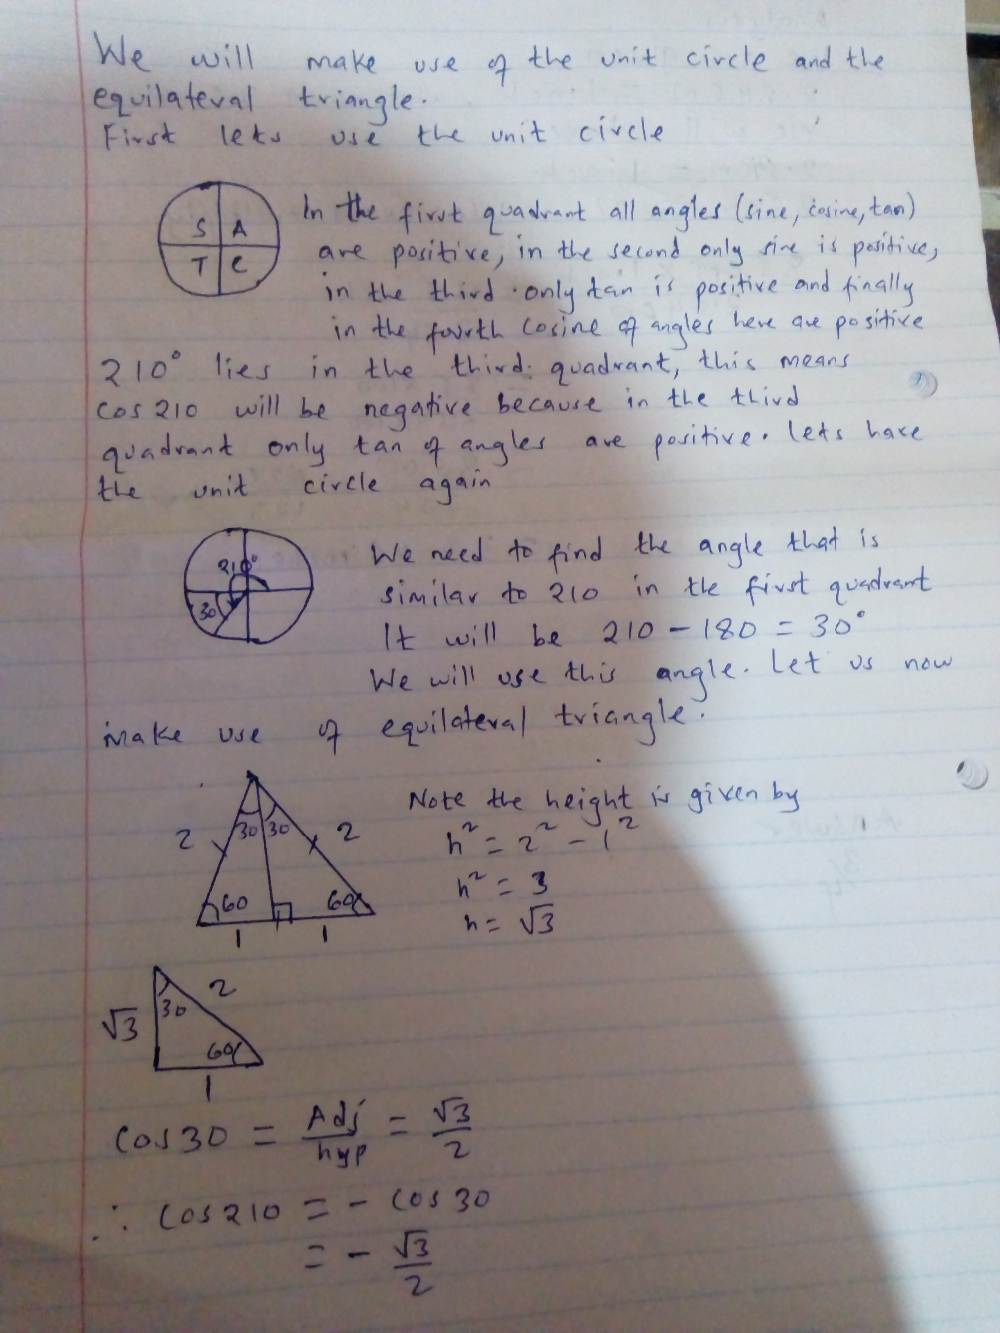 We will make use of the unit circle and the
equilateral triangle.
First lets use the unit circle
S A
T C
In the first quadrant all angles (sine, cosine, tan)
are positive, in the second only sine is positive,
in the third only tan is positive and finally
in the fourth cosine of angles here are positive
210° lies in the third quadrant, this means
cos 210 will be negative because in the third
quadrant only tan of angles are positive. lets have
the unit circle again
210°
30
We need to find the angle that is
similar to 210 in the first quadrant
It will be 210 - 180 = 30°
We will use this angle. Let us now
make use of equilateral triangle.
2 30 30 2
60 60
1 1
Note the height is given by
h² = 2² - 1²
h² = 3
h = √3
√3 30 2
60
1
cos 30 = Adj/hyp = √3/2
∴ cos 210 = - cos 30
= - √3/2